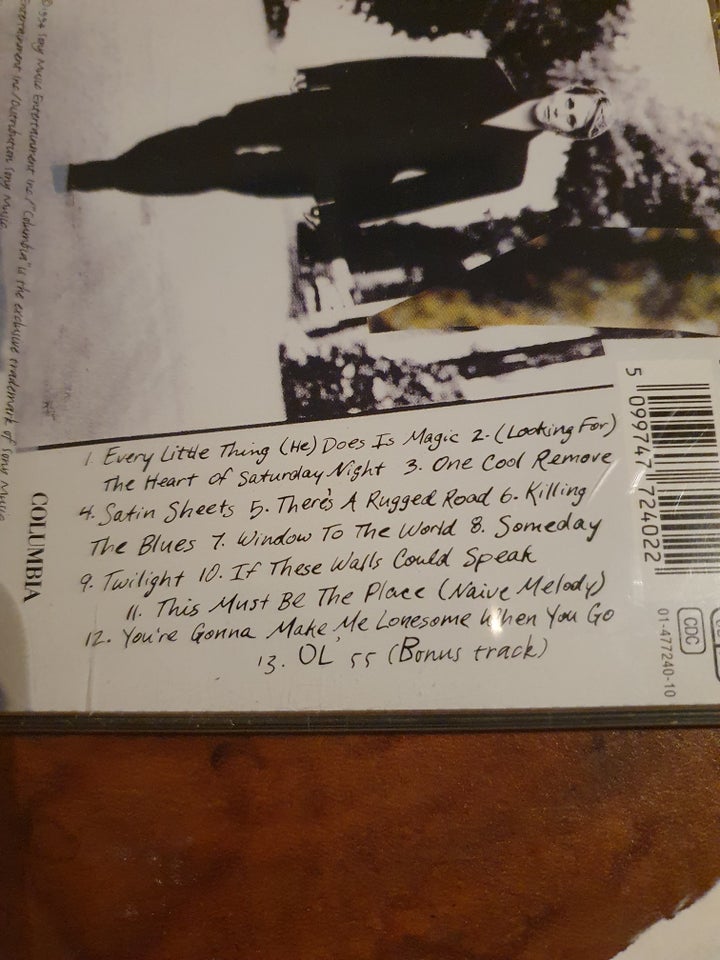 ©1994 Sony Music Entertainment Inc./"Columbia" is the exclusive trademark of Sony Music
Entertainment Inc./Distribution Sony Music
COLUMBIA
1. Every Little Thing (He) Does Is Magic 2. (Looking For)
The Heart of Saturday Night 3. One Cool Remove
4. Satin Sheets 5. There's A Rugged Road 6. Killing
The Blues 7. Window To The World 8. Someday
9. Twilight 10. If These Walls Could Speak
11. This Must Be The Place (Naive Melody)
12. You're Gonna Make Me Lonesome When You Go
13. OL' 55 (Bonus track)
5 099747 724022
01-477240-10
CDC